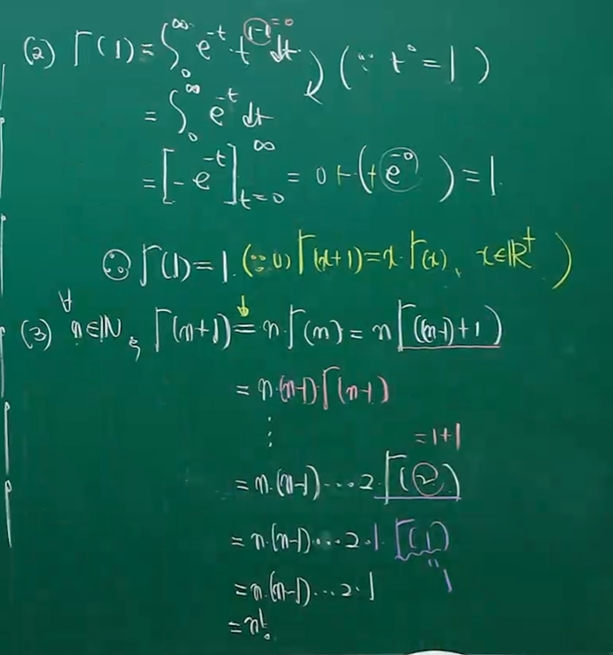 (2) Γ(1) = ∫₀^∞ e^{-t} · t^{1-1} dt =0 (∵ t⁰ = 1)
= ∫₀^∞ e^{-t} dt
= [-e^{-t}]_{t=0}^∞ = 0 + (+e^{-0}) = 1.
∴ Γ(1) = 1. (∵ (1) Γ(x+1) = x·Γ(x), x∈ℝ⁺)
(3) ∀n∈ℕ, Γ(n+1) = n·Γ(n) = nΓ((n-1)+1)
= n·(n-1)Γ(n-1)
⋮ =1+1
= n·(n-1)···2·Γ(2)
= n·(n-1)···2·1·Γ(1)
= n·(n-1)···2·1 " 1
= n!